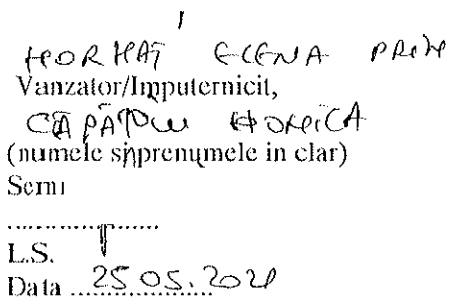 HORHAT ELENA PRIN
Vanzator/Imputernicit,
CĂPĂȚOIU
(numele si prenumele in clar)
Semn
....................
L.S.
Data ...25.05.2021